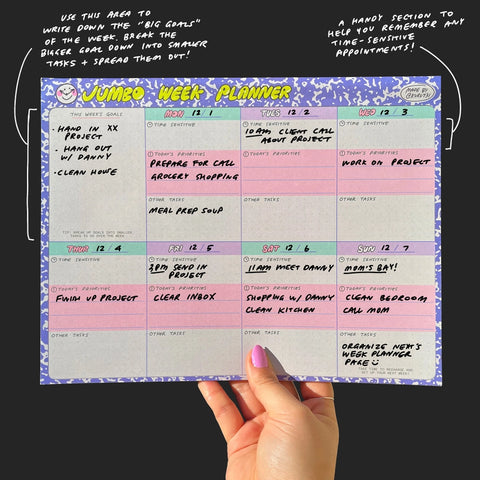 USE THIS AREA TO
WRITE DOWN THE "BIG GOALS"
OF THE WEEK. BREAK THE
BIGGER GOAL DOWN INTO SMALLER
TASKS + SPREAD THEM OUT!
A HANDY SECTION TO
HELP YOU REMEMBER ANY
TIME-SENSITIVE
APPOINTMENTS!
JUMBO WEEK PLANNER
MADE BY
THIS WEEK'S GOALS
• HAND IN XX
PROJECT
• HANG OUT
W/ DANNY
• CLEAN HOUSE
TIP! BREAK UP GOALS INTO SMALLER
TASKS TO DO OVER THE WEEK
MON 12 / 1
TIME SENSITIVE
TODAY'S PRIORITIES
PREPARE FOR CALL
GROCERY SHOPPING
OTHER TASKS
MEAL PREP SOUP
TUES 12 / 2
TIME SENSITIVE
10AM CLIENT CALL
ABOUT PROJECT
TODAY'S PRIORITIES
OTHER TASKS
WED 12 / 3
TIME SENSITIVE
TODAY'S PRIORITIES
WORK ON PROJECT
OTHER TASKS
THUR 12 / 4
TIME SENSITIVE
TODAY'S PRIORITIES
FINISH UP PROJECT
OTHER TASKS
FRI 12 / 5
TIME SENSITIVE
SEND IN
PROJECT
TODAY'S PRIORITIES
CLEAR INBOX
OTHER TASKS
SAT 12 / 6
TIME SENSITIVE
11AM MEET DANNY
TODAY'S PRIORITIES
SHOPPING W/ DANNY
CLEAN KITCHEN
OTHER TASKS
SUN 12 / 7
TIME SENSITIVE
MOM'S BAY!
TODAY'S PRIORITIES
CLEAN BEDROOM
CALL MOM
OTHER TASKS
ORGANIZE NEXT'S
WEEK PLANNER
PAGE
TAKE TIME TO RECHARGE AND
SET UP YOUR NEXT WEEK!